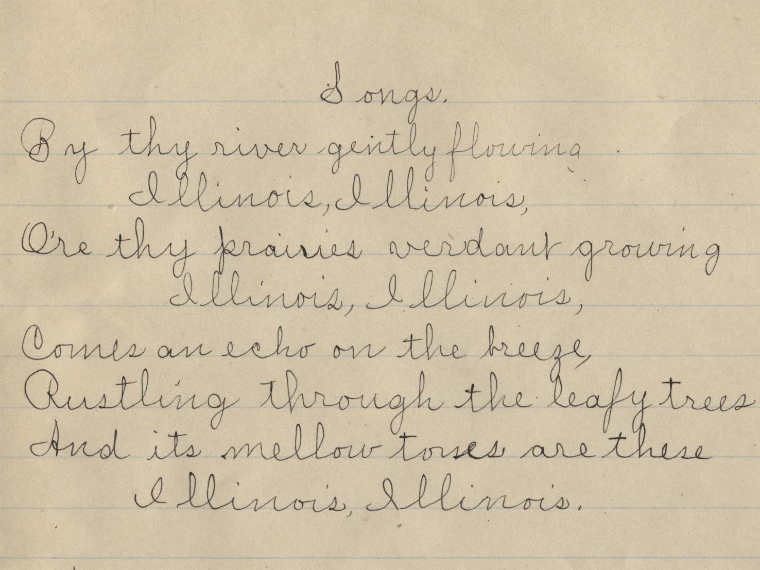 Songs.
By thy river gently flowing
Illinois, Illinois,
O're thy prairies verdant growing
Illinois, Illinois,
Comes an echo on the breeze,
Rustling through the leafy trees
And its mellow tones are these
Illinois, Illinois.